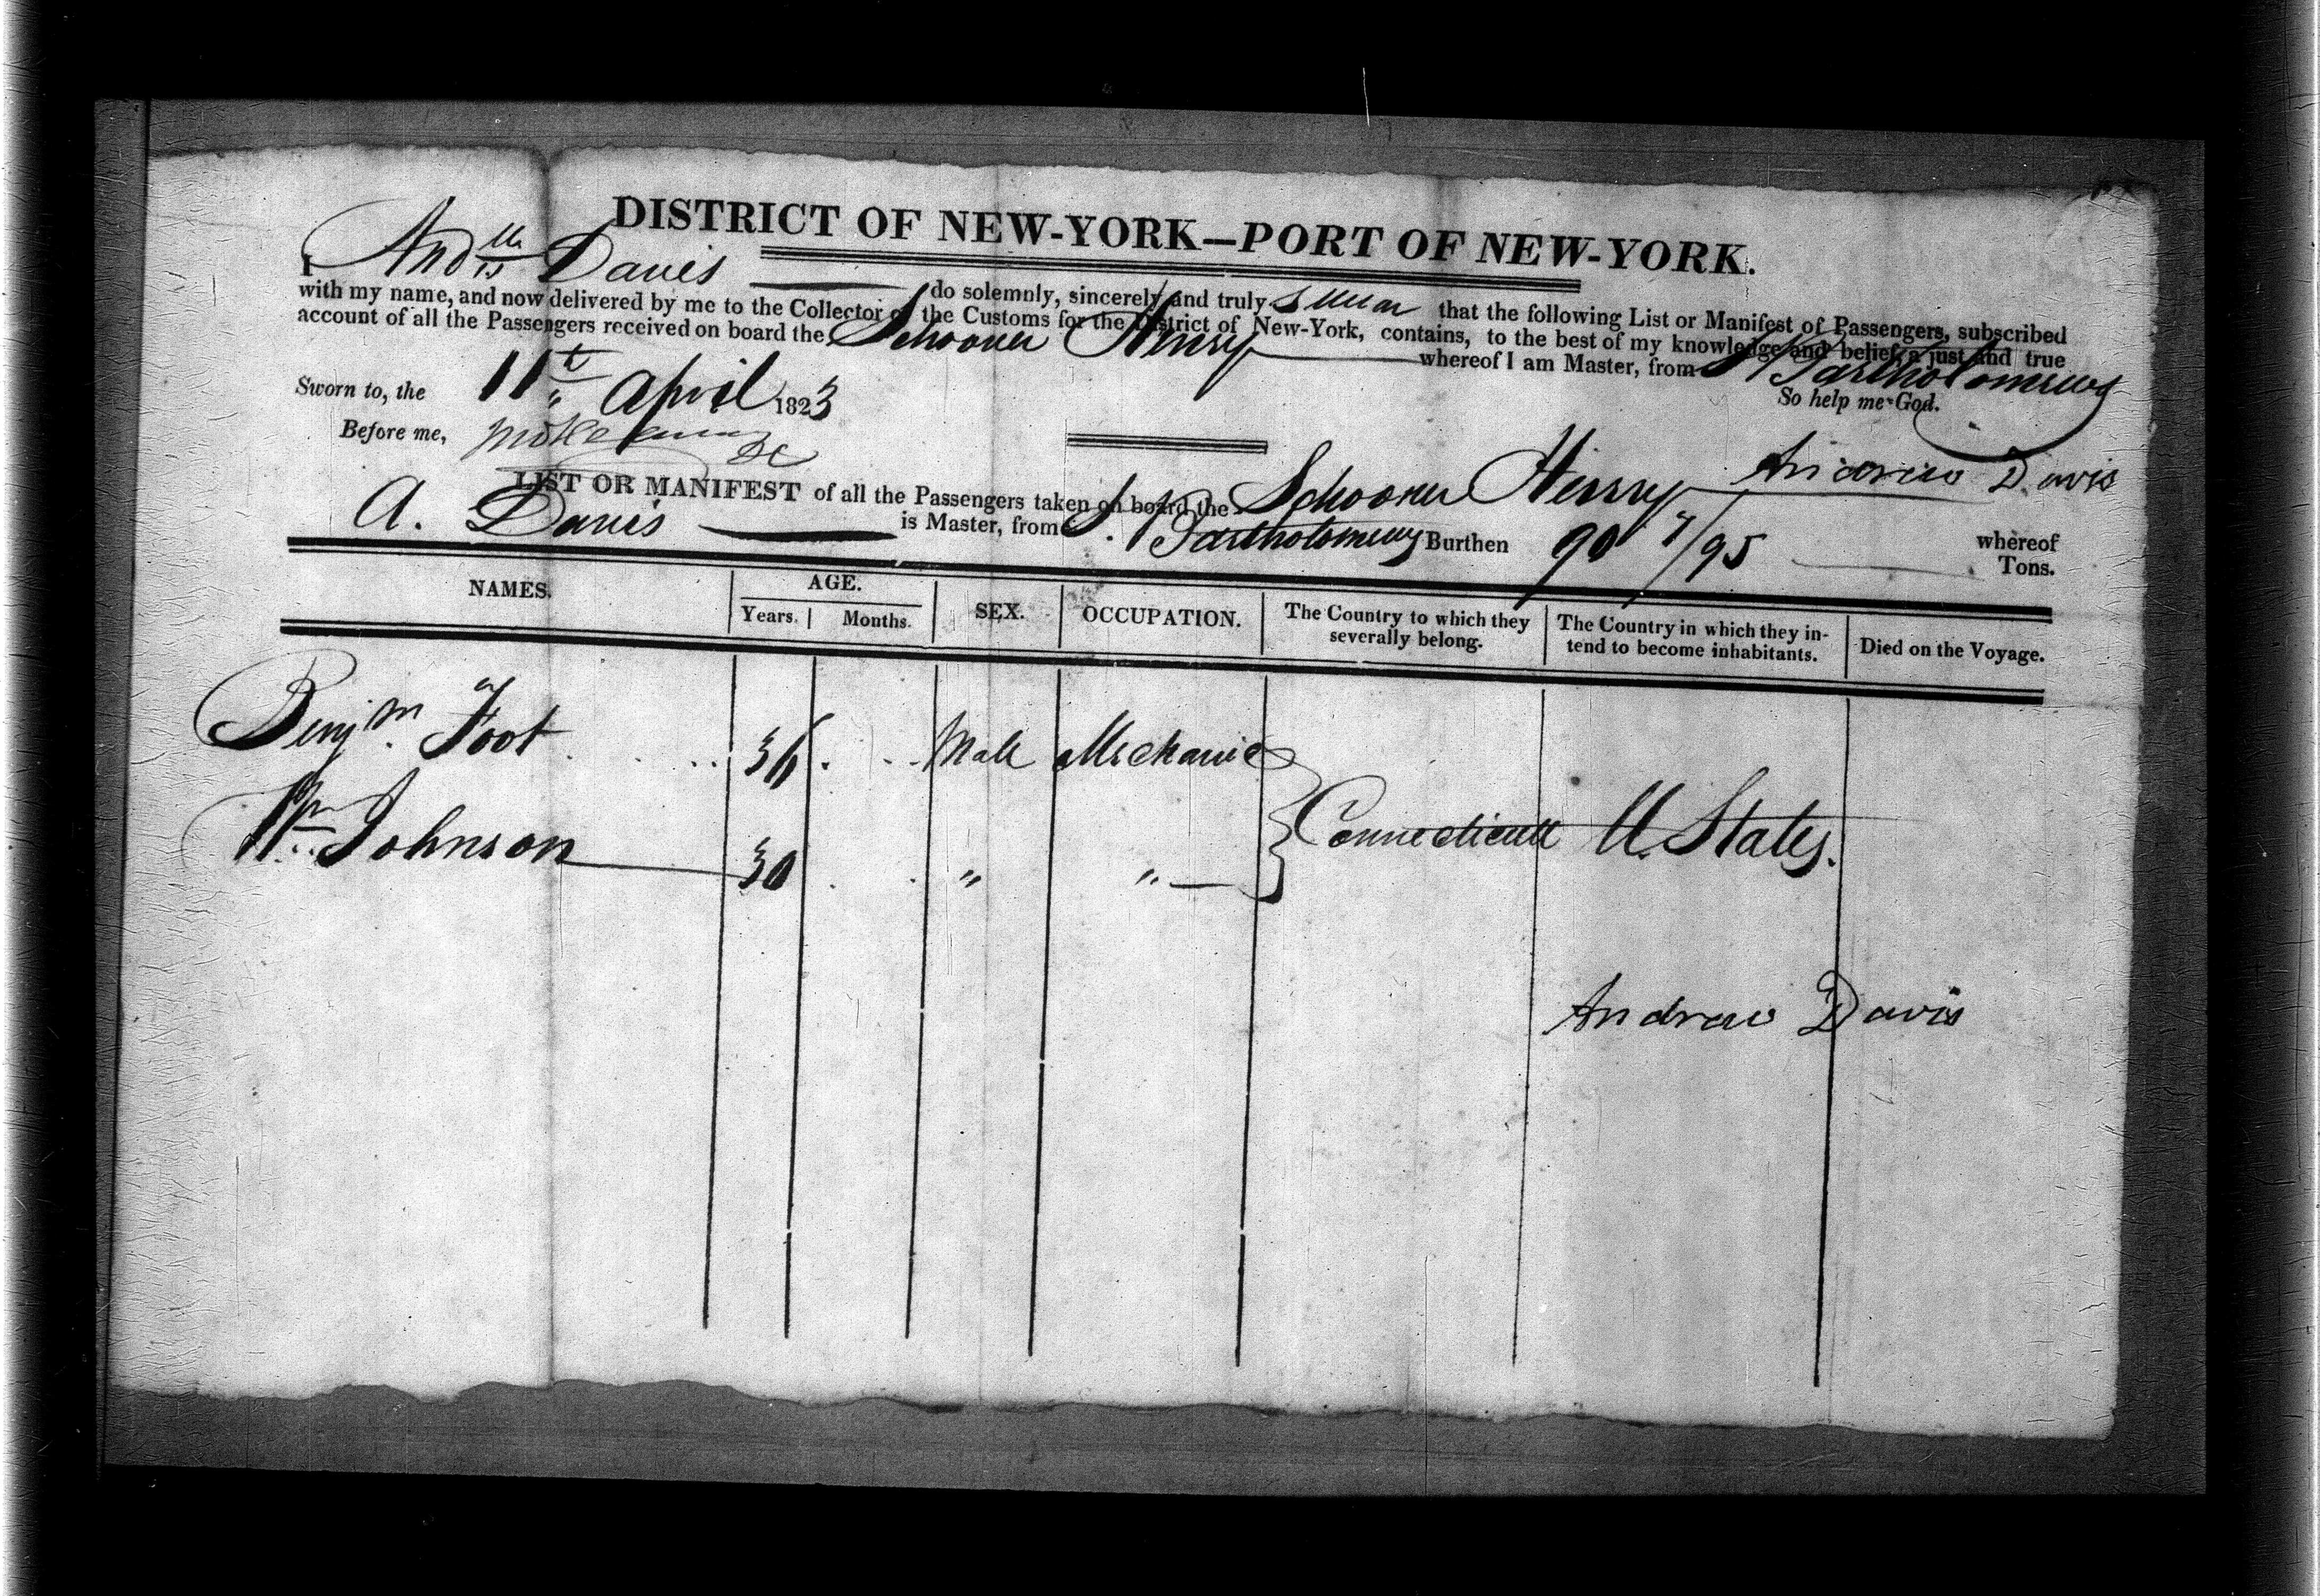 DISTRICT OF NEW-YORK—PORT OF NEW-YORK.
I And^w Davis do solemnly, sincerely and truly swear that the following List or Manifest of Passengers, subscribed
with my name, and now delivered by me to the Collector of the Customs for the District of New-York, contains, to the best of my knowledge and belief, a just and true
account of all the Passengers received on board the Schooner Henry whereof I am Master, from St Bartholomews
Sworn to, the 11th April 1823 So help me God.
Before me,
Andrew Davis
LIST OR MANIFEST of all the Passengers taken on board the Schooner Henry whereof
A. Davis is Master, from St. Bartholomews Burthen 90 7/95 Tons.
NAMES. AGE. SEX. OCCUPATION. The Country to which they severally belong. The Country in which they intend to become inhabitants. Died on the Voyage.
Years. Months.
Benjm. Foot 36 Male Mechanic
Connecticutt U. States.
Wm Johnson 30 " "
Andrew Davis